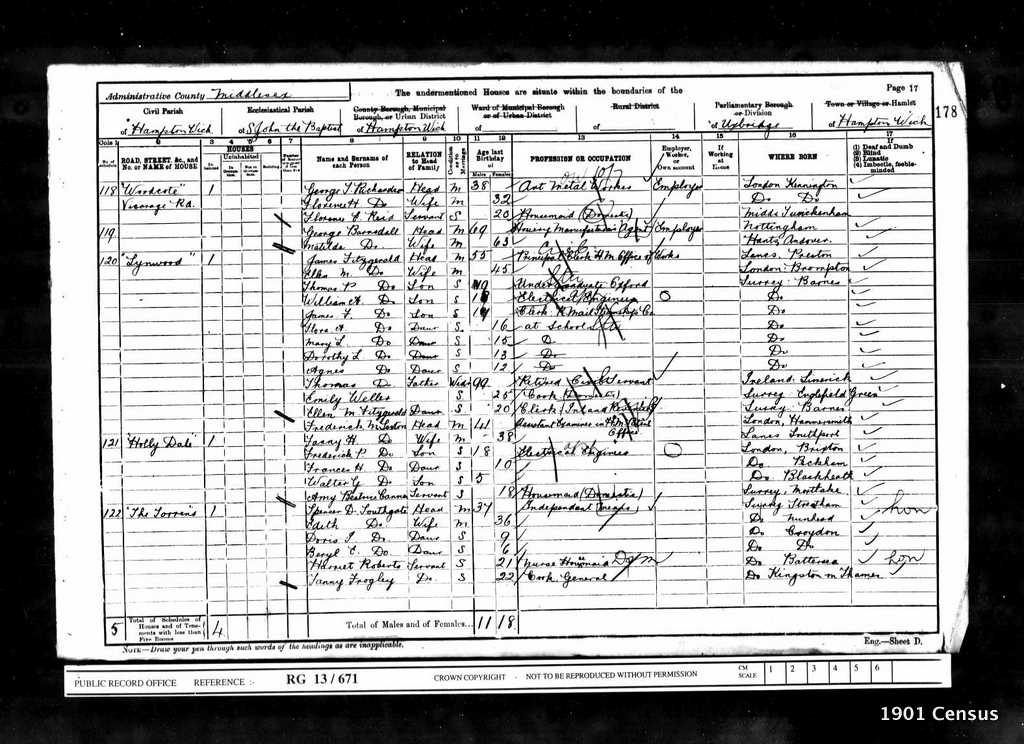 Administrative County Middlesex The undermentioned Houses are situate within the boundaries of the Page 17
Civil Parish Ecclesiastical Parish County Borough, Municipal Borough, or Urban District Ward of Municipal Borough or of Urban District Rural District Parliamentary Borough or Division Town or Village or Hamlet 178
of Hampton Wick of St John the Baptist of Hampton Wick of of of Uxbridge of Hampton Wick
ROAD, STREET, &c., and No. or NAME of HOUSE HOUSES Uninhabited Name and Surname of each Person RELATION to Head of Family Condition as to Marriage Age last Birthday of Males Females PROFESSION OR OCCUPATION Employer, Worker, or Own account If Working at Home WHERE BORN If (1) Deaf and Dumb (2) Blind (3) Lunatic (4) Imbecile, feeble-minded
118 "Woodcote" 1 George T Richardson Head M 38 Art Metal Worker Employer London Kennington
Vicarage Rd. Florence H Do Wife M 32 Do Do
Florence E Reid Servant S 20 Housemaid (Domestic) Middx Twickenham
119 George Barnsdall Head M 69 Hosiery Manufacturers Agent Employer Nottingham
Matilda Do. Wife M 63 Hants, Andover
120 "Lynwood" 1 James Fitzgerald Head M 55 Principal Clerk H.M. Office of Works Lancs. Preston
M. Do Wife M 45 London Brompton
Thomas P Do Son S 19 Undergraduate Oxford Surrey Barnes
William A Do Son S 18 Electrical Engineer Do
James F. Do Son S Clerk R Mail Steamship Co. Do
Flora A. Do Daur S. 16 at School Do
Mary L. Do Daur S 15 Do Do
Dorothy L Do Daur S 13 Do Do
Agnes Do Daur S 12 Do Do
Thomas Do Father Widr 99 Retired Civil Servant Ireland Limerick
Emily Weller S 25 Cook (Domestic) Surrey Englefield Green
Ellen M Fitzgerald Daur S 20 Clerk Surrey Barnes
Frederick W Head M 41 Assistant Examiner in H.M. Patent Office London, Hammersmith
121 "Holly Dale" 1 Fanny H. Do Wife M 38 Lancs Southport
Frederick P Do Son S 18 Electrical Engineer London, Brixton
Frances H Do Daur S 10 Do. Peckham
Walter G Do Son S 5 Do Blackheath
Amy Beatrice Servant S 18 Housemaid (Domestic) Surrey, Mortlake
122 "The Torrins" 1 Spencer D. Southgate Head M 37 Independent means Surrey Streatham
Edith Do. Wife M 36 Do Nunhead
Doris I Do Daur S 9 Do Croydon
Beryl E. Do. Daur S 6 Do Do
Harriet Roberts Servant S 21 Nurse Housemaid Dom Do Battersea
Fanny Frogley Do. S 22 Cook General Do Kingston on Thames
5 Total of Schedules of Houses and of Tenements with less than Five Rooms 4 Total of Males and of Females... 11 18
NOTE—Draw your pen through such words of the headings as are inapplicable. Eng.—Sheet D.
PUBLIC RECORD OFFICE REFERENCE :- RG 13/671 CROWN COPYRIGHT - NOT TO BE REPRODUCED WITHOUT PERMISSION CM SCALE 1 2 3 4 5 6
1901 Census